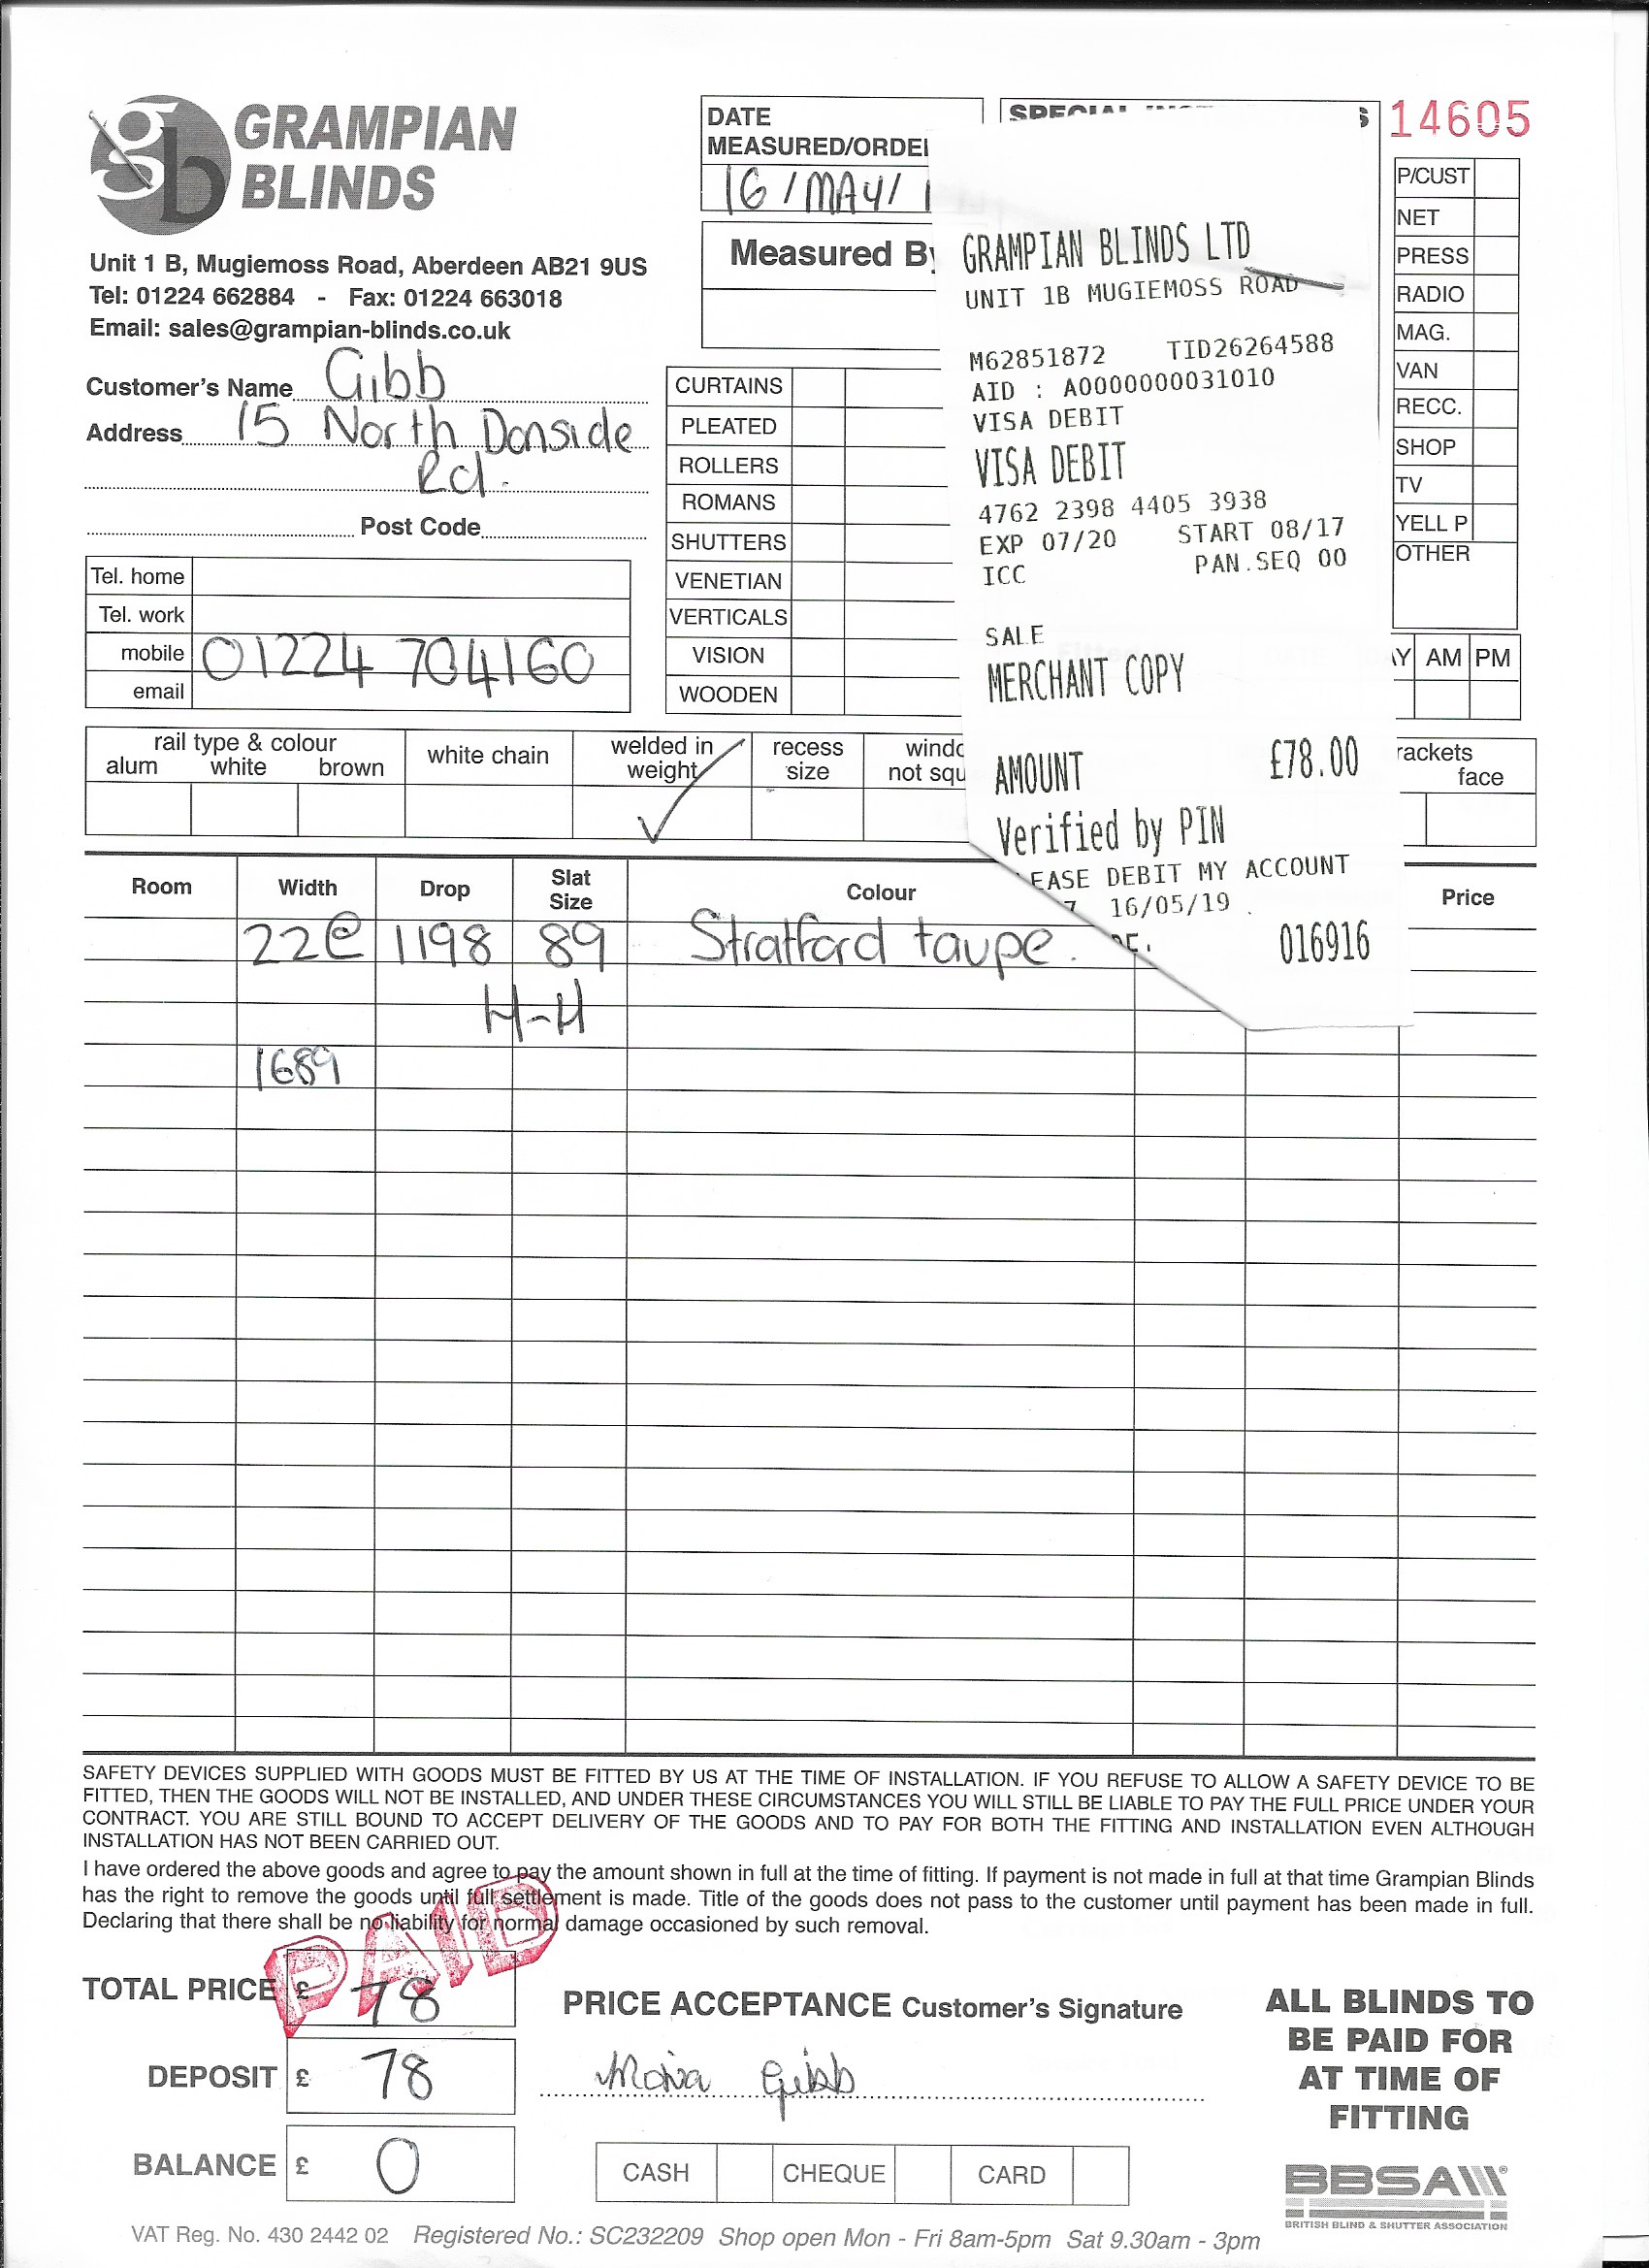 gb GRAMPIAN
BLINDS
Unit 1 B, Mugiemoss Road, Aberdeen AB21 9US
Tel: 01224 662884 - Fax: 01224 663018
Email: sales@grampian-blinds.co.uk
Customer's Name Gibb
Address 15 North Donside
Rd.
Post Code
Tel. home
Tel. work
mobile 01224 704160
email
DATE
MEASURED/ORDE
16/MAY/1
Measured By
SPECIAL
14605
CURTAINS
PLEATED
ROLLERS
ROMANS
SHUTTERS
VENETIAN
VERTICALS
VISION
WOODEN
GRAMPIAN BLINDS LTD
UNIT 1B MUGIEMOSS ROAD
M62851872 TID26264588
AID : A0000000031010
VISA DEBIT
VISA DEBIT
4762 2398 4405 3938
EXP 07/20 START 08/17
ICC PAN.SEQ 00
SALE
MERCHANT COPY
AMOUNT £78.00
Verified by PIN
EASE DEBIT MY ACCOUNT
7 16/05/19
016916
P/CUST
NET
PRESS
RADIO
MAG.
VAN
RECC.
SHOP
TV
YELL P
OTHER
Y AM PM
rail type & colour
alum white brown
white chain
welded in
weight ✓
recess
size
windo
not squ
rackets
face
Room Width Drop Slat Size Colour Price
22@ 1198 89 Stratford taupe.
H-H
1689
SAFETY DEVICES SUPPLIED WITH GOODS MUST BE FITTED BY US AT THE TIME OF INSTALLATION. IF YOU REFUSE TO ALLOW A SAFETY DEVICE TO BE
FITTED, THEN THE GOODS WILL NOT BE INSTALLED, AND UNDER THESE CIRCUMSTANCES YOU WILL STILL BE LIABLE TO PAY THE FULL PRICE UNDER YOUR
CONTRACT. YOU ARE STILL BOUND TO ACCEPT DELIVERY OF THE GOODS AND TO PAY FOR BOTH THE FITTING AND INSTALLATION EVEN ALTHOUGH
INSTALLATION HAS NOT BEEN CARRIED OUT.
I have ordered the above goods and agree to pay the amount shown in full at the time of fitting. If payment is not made in full at that time Grampian Blinds
has the right to remove the goods until full settlement is made. Title of the goods does not pass to the customer until payment has been made in full.
Declaring that there shall be no liability for normal damage occasioned by such removal.
PAID
TOTAL PRICE £ 78
DEPOSIT £ 78
BALANCE £ 0
PRICE ACCEPTANCE Customer's Signature
Moira Gibb
CASH CHEQUE CARD
ALL BLINDS TO
BE PAID FOR
AT TIME OF
FITTING
BBSA
BRITISH BLIND & SHUTTER ASSOCIATION
VAT Reg. No. 430 2442 02 Registered No.: SC232209 Shop open Mon - Fri 8am-5pm Sat 9.30am - 3pm